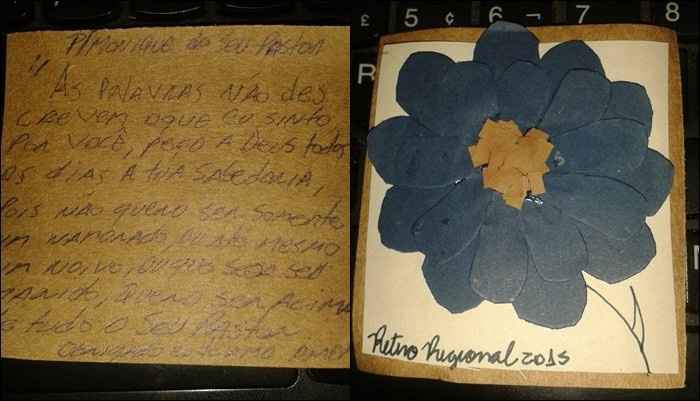 P/ MONIQUE do Seu Pastor
"
As PALAVRAS NÃO DES
CREVEM OQUE EU SINTO
POR VOCÊ, PEÇO A DEUS todos
OS diAS A tua SAbedoRiA,
Pois NÃO QUERO SER Somente
um NAMORADO, mesmo
um NOIVO, OUQUE SEJA SEU
MARIDO, QUERO SER ACIMA
do tudo O Seu PASTOR
£ 5 ¢ 6 ¬ 7 8
R
Retiro Regional 2015